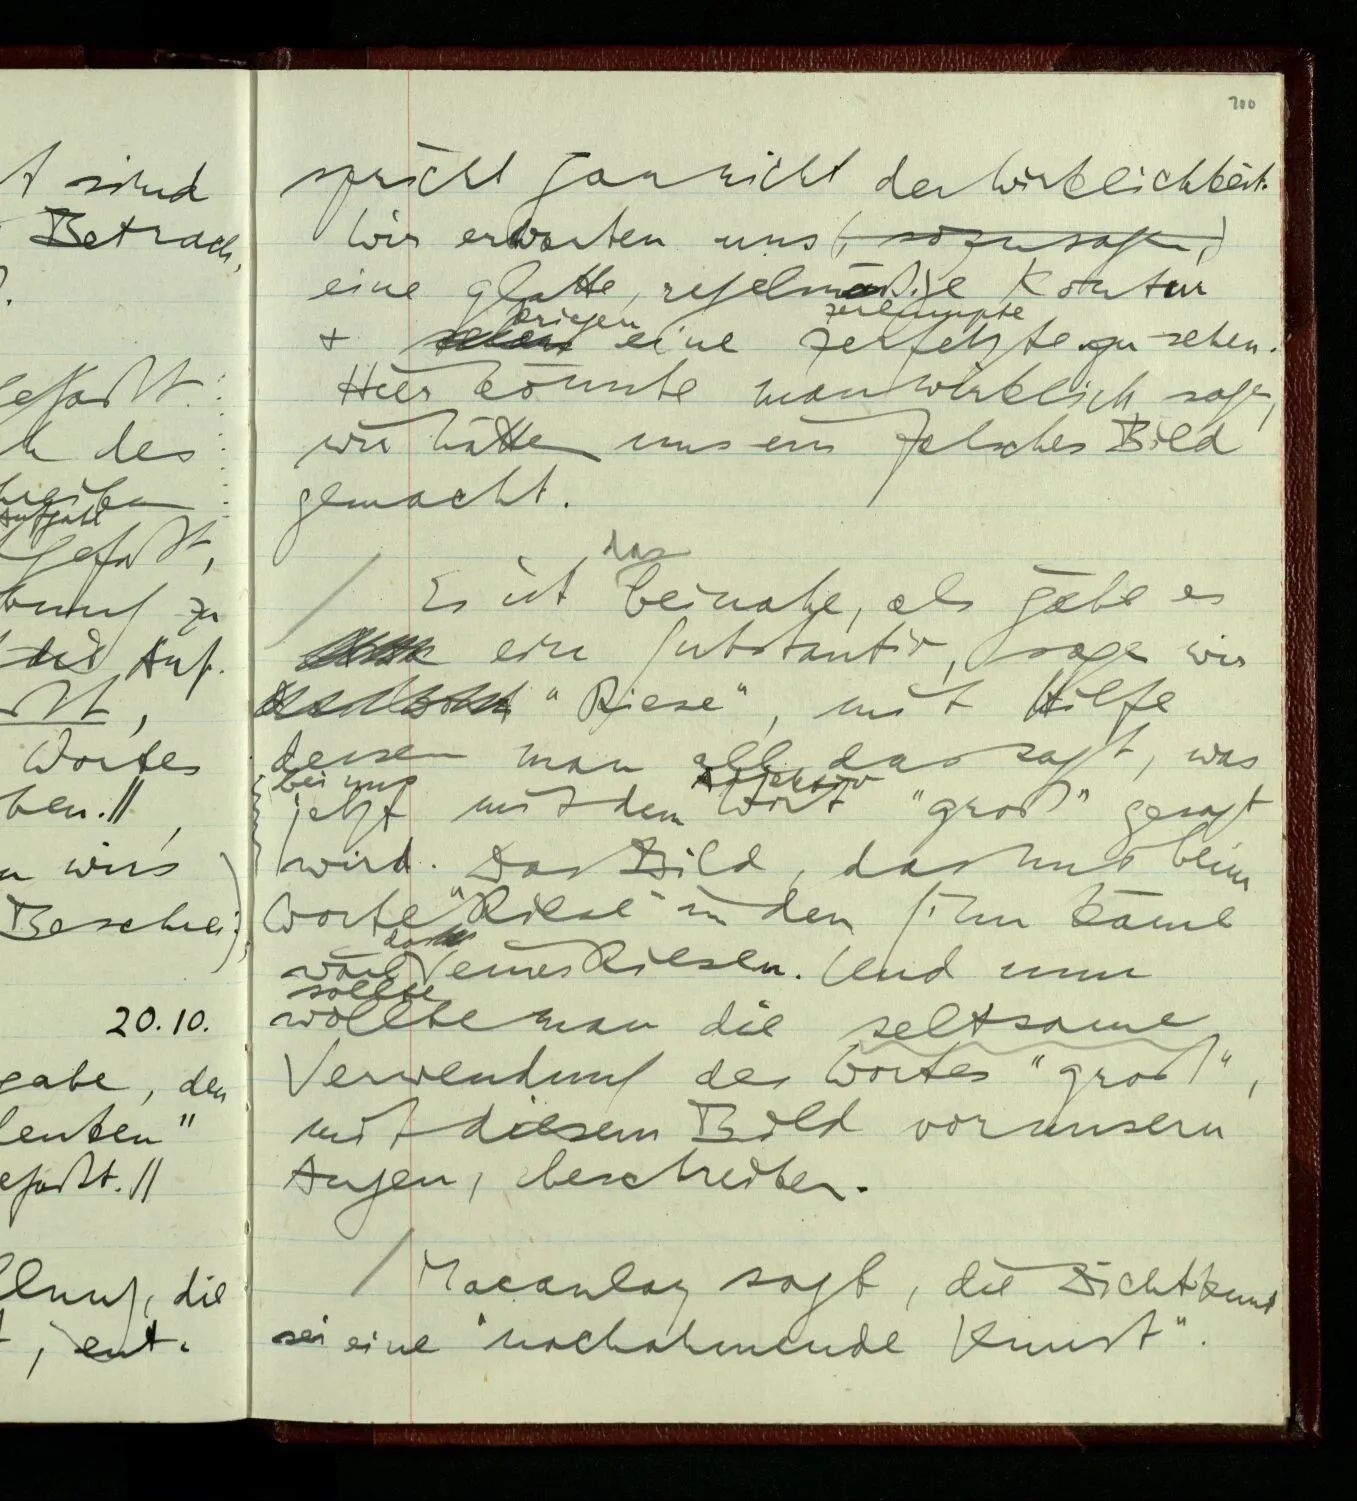 t sind
Betrach,
gefaßt.
h des
Aufgabe
gefaßt,
zu
die Auf.
Wortes
ben. //
n wir's
Beschrei-
20.10.
gabe, den
leuten"
gefaßt. //
llung, die
t, ent-
200
spricht gar nicht der Wirklichkeit.
Wir erwarten uns (, sozusagen,)
eine glatte, regelmäßige Kontur
kriegen zerlumpte
+ eine zerfetzte zu sehen.
Hier könnte man wirklich sagen,
wir hätten uns ein falsches Bild
gemacht.
das
/ Es ist beinahe, als gäbe es
ein Substantiv, sagen wir
"Riese", mit Hilfe
dessen man all das sagt, was
bei uns Adjektiv
jetzt mit dem Wort "groß" gesagt
wird. Das Bild, das uns beim
Worte "Riese" in den Sinn käme
das
wäre eines Riesen. Und nun
sollte
wollte man die seltsame
Verwendung des Wortes "groß",
mit diesem Bild vor unsern
Augen, beschreiben.
/ Macaulay sagt, die Dichtkunst
sei eine "nachahmende Kunst".